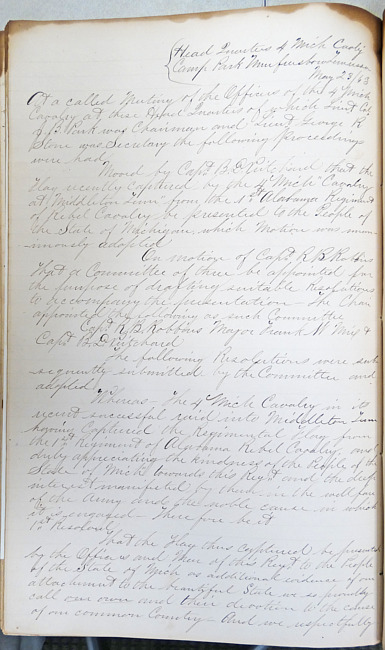 Head Quarters 4 Mich Cavly
Camp Park Murfreesboro Tennessee
May 29/63
At a called Meeting of the Officers of the 4 Mich
Cavalry at their Head Quarters of which Lieut Col
J. B. Park was Chairman and Lieut George R
Stone was Secretary the following proceedings
were had
Moved by Capt B. D. Pritchard that the
Flag recently captured by the 4" Mich" Cavalry
at Middleton Tenn" from the 1st Alabama Regiment
of Rebel Cavalry be presented to the People of
the State of Michigan, which Motion was unan-
imously adopted
On motion of Capt R B Robbins
that a Committee of three be appointed for
the purpose of drafting suitable Resolutions
to accompany the presentation – The Chair
appointed the following as such Committee
Capt R. B. Robbins Mayor Frank W Mix &
Capt B. D. Pritchard
The following Resolutions were sub
sequently submitted by the Committee and
adopted
Whereas – The 4" Mich Cavalry in its
recent successful raid into Middleton Tenn
having Captured the Regimental Flag from
the 1st Regiment of Alabama Rebel Cavalry and
duly appreciating the kindness of the People of the
State of Mich towards this Regt and the deep
interest manifested by them in the wellfare
of the Army and the noble cause in which
it is engaged Therefore be it
1st Resolved,
That the Flag thus captured be presented
by the Officers and Men of this Regt to the People
of the State of Mich as additional evidence of our
attachment to the beautiful State we so proudly
call our own and their devotion to the cause
of our common Country – And we respectfully